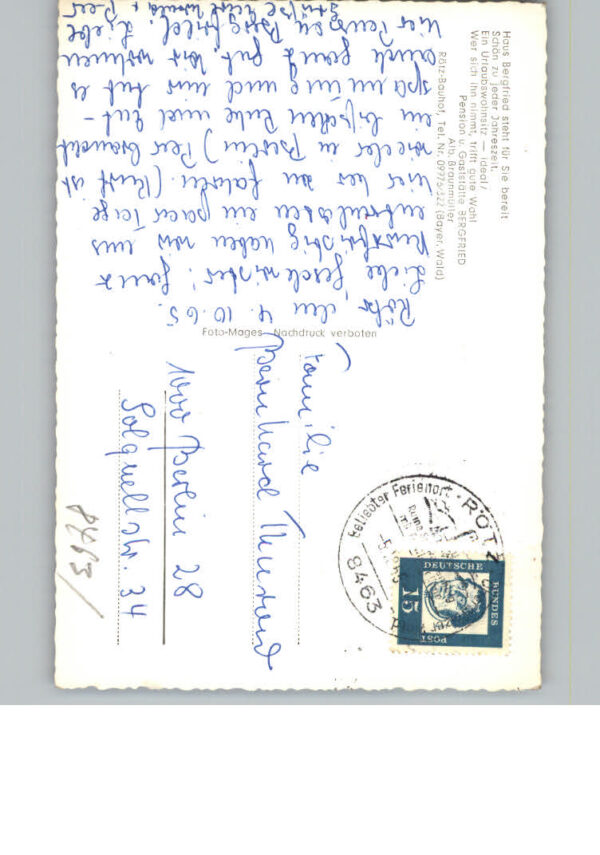 Haus Bergfried steht für Sie bereit
Schön zu jeder Jahreszeit.
Ein Urlaubswohnsitz — ideal!
Wer sich ihn nimmt, trifft gute Wahl
Pension u. Gaststätte BERGFRIED
Alb. Braunmüller
Rötz-Bauhof, Tel. Nr. 09976/322 (Bayer. Wald)
Rötz, den 4. 10. 65.
Liebe Geschwister! Ganz
kurzfristig haben wir uns
entschlossen ein paar Tage
hier her zu fahren. (Kurt ist
wieder in Berlin) Peer braucht
ein bißchen Ruhe und Ent-
spannung und uns tut es
auch ganz gut. Wir wohnen
hier Pension Bergfried. Liebe
Grüße + Peer
Foto-Mages Nachdruck verboten
Familie
Bernhard
1000 Berlin 28
Solquellstr. 34
8463 RÖTZ
Beliebter Ferienort
DEUTSCHE
BUNDES
POST
15